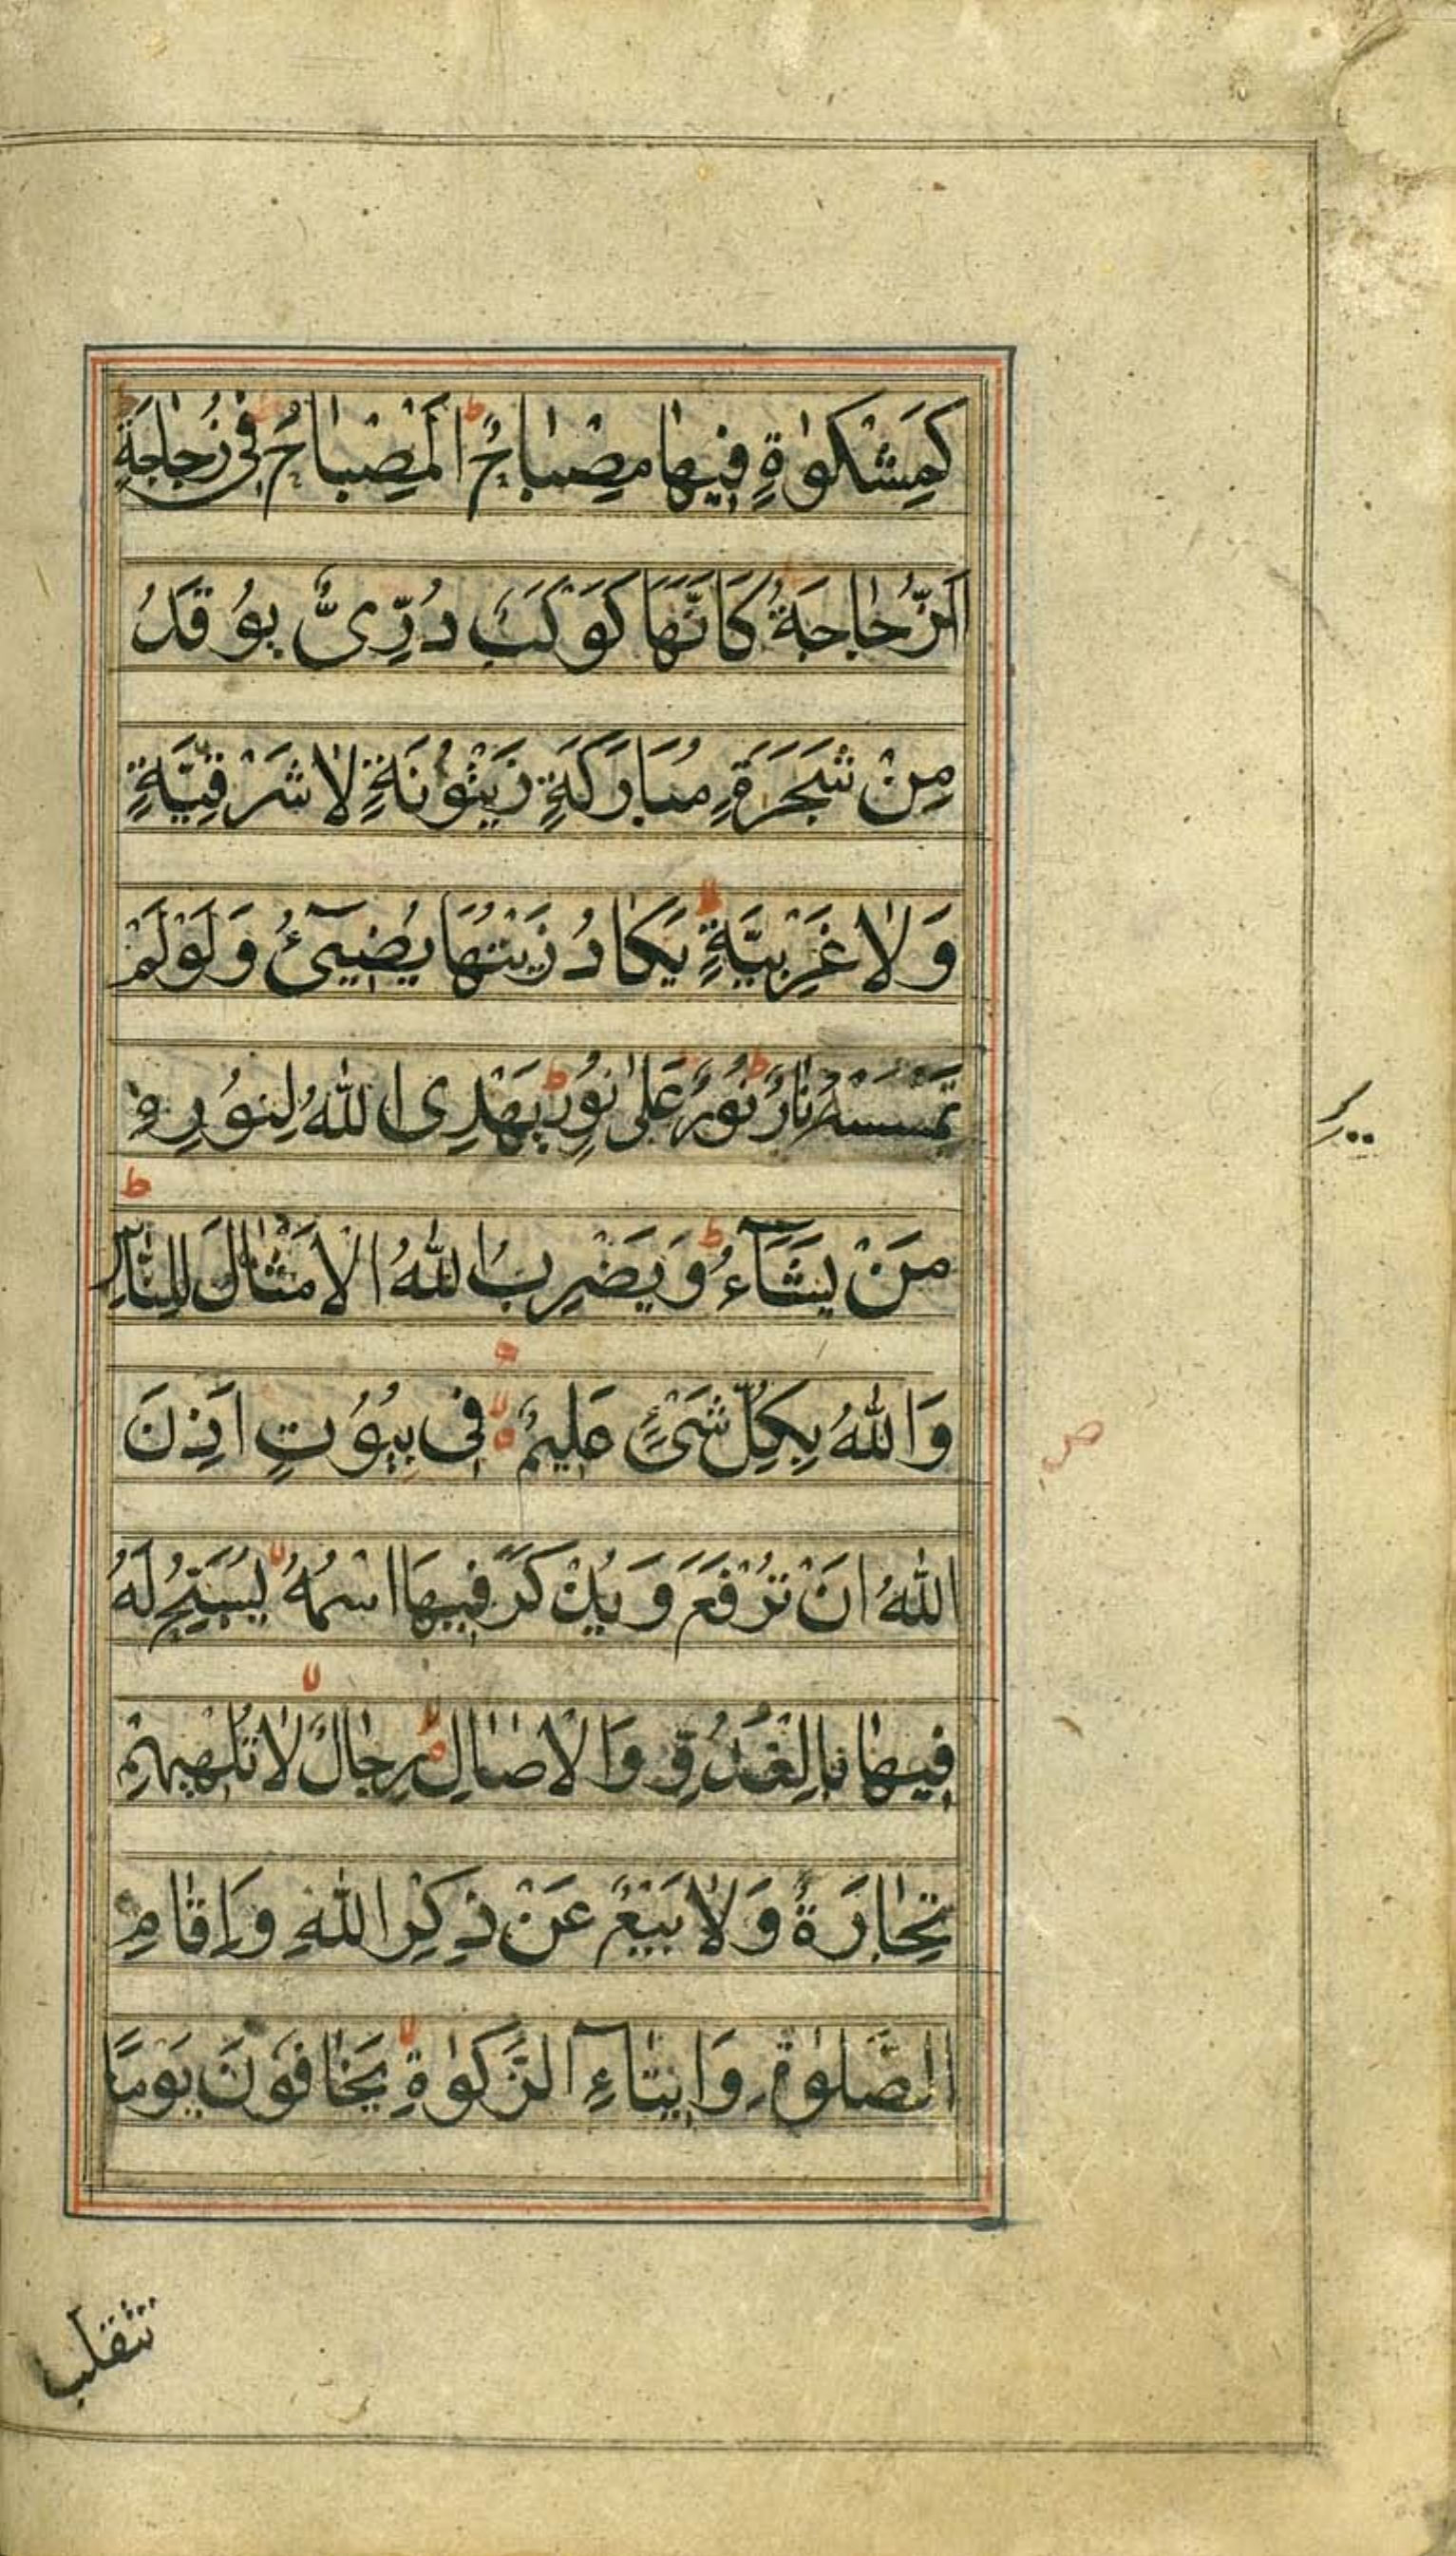 كَمِشْكٰوةٍ فِيهٰا مِصْبٰاحٌ ط اَلْمِصْبٰاحُ فِى زُجٰاجَةٍ
اَلزُّجٰاجَةُ كَاَنَّهَا كَوْكَبٌ دُرِّىٌّ يُوْقَدُ
مِنْ شَجَرَةٍ مُبَارَكَةٍ زَيْتُوْنَةٍ لاٰ شَرْقِيَّةٍ
وَلاٰ غَرْبِيَّةٍ لا يَكٰادُ زَيْتُهَا يُضِيٓئُ وَلَوْ لَمْ
تَمْسَسْهُ نٰارٌ ط نُوْرٌ عَلىٰ نُوْرٍ ط يَهْدِى اللّٰهُ لِنُوْرِهٖ
مَنْ يَشَآءُ ط وَيَضْرِبُ اللّٰهُ الْاَمْثٰالَ لِلنَّاسِ ط
وَاللّٰهُ بِكُلِّ شَىْءٍ عَلِيْمٌ لا فِى بُيُوْتٍ اَذِنَ
اللّٰهُ اَنْ تُرْفَعَ وَيُذْكَرَ فِيهَا اسْمُهُ لا يُسَبِّحُ لَهُ
فِيهٰا بِالْغُدُوِّ وَالْاٰصٰالِ لا رِجٰالٌ لا لاٰ تُلْهِيهِمْ
تِجٰارَةٌ وَلاٰ بَيْعٌ عَنْ ذِكْرِ اللّٰهِ وَاِقٰامِ
الصَّلوٰةِ وَاِيْتٰآءِ الزَّكوٰةِ لا يَخٰافُوْنَ يَوْمًا
تتقلب